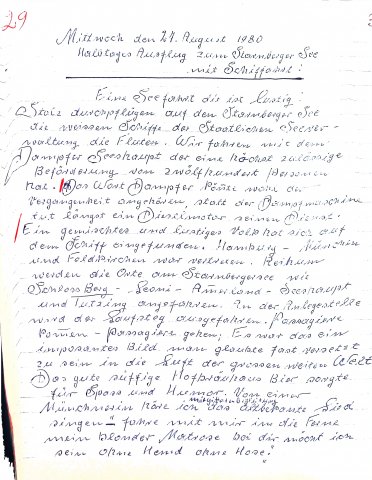 29
Mittwoch den 27. August 1980
Halbtages Ausflug zum Starnberger See
mit Schiffahrt:
Eine Seefahrt die ist lustig!
Stolz durchpflügen auf den Starnberger See
die weissen Schiffe der Staatlichen Seever-
waltung die Fluten. Wir fahren mit dem
Dampfer Seeshaupt der eine höchst zulässige
Beförderung von zwölfhundert Personen
hat. Das Wort Dampfer könte wohl der
Vergangenheit angehören, statt der Dampfmaschine
tut längst ein Dieselmotor seinen Dienst.
Ein gemischtes und lustiges Volk hat sich auf
dem Schiff eingefunden. Hamburg - München
und Feldkirchen war vertreten. Reihum
werden die Orte am Starnbergersee wie
Schloss Berg - Leoni - Amerland - Seeshaupt
und Tutzing angefahren. In der Anlegestelle
wird der Laufsteg ausgefahren. Passagiere
kommen - Passagiere gehen; Es war das ein
imposantes Bild man glaubte fast versetzt
zu sein in die Luft der grossen weiten Welt
Das gute süffige Hofbräuhaus Bier sorgte
für Spass und Humor. Von einer
Münchnerin höre ich das altbekante Lied
singen " fahre mit mir in die Ferne
mein blonder Matrose bei dir möcht ich
sein ohne Hemd ohne Hose."